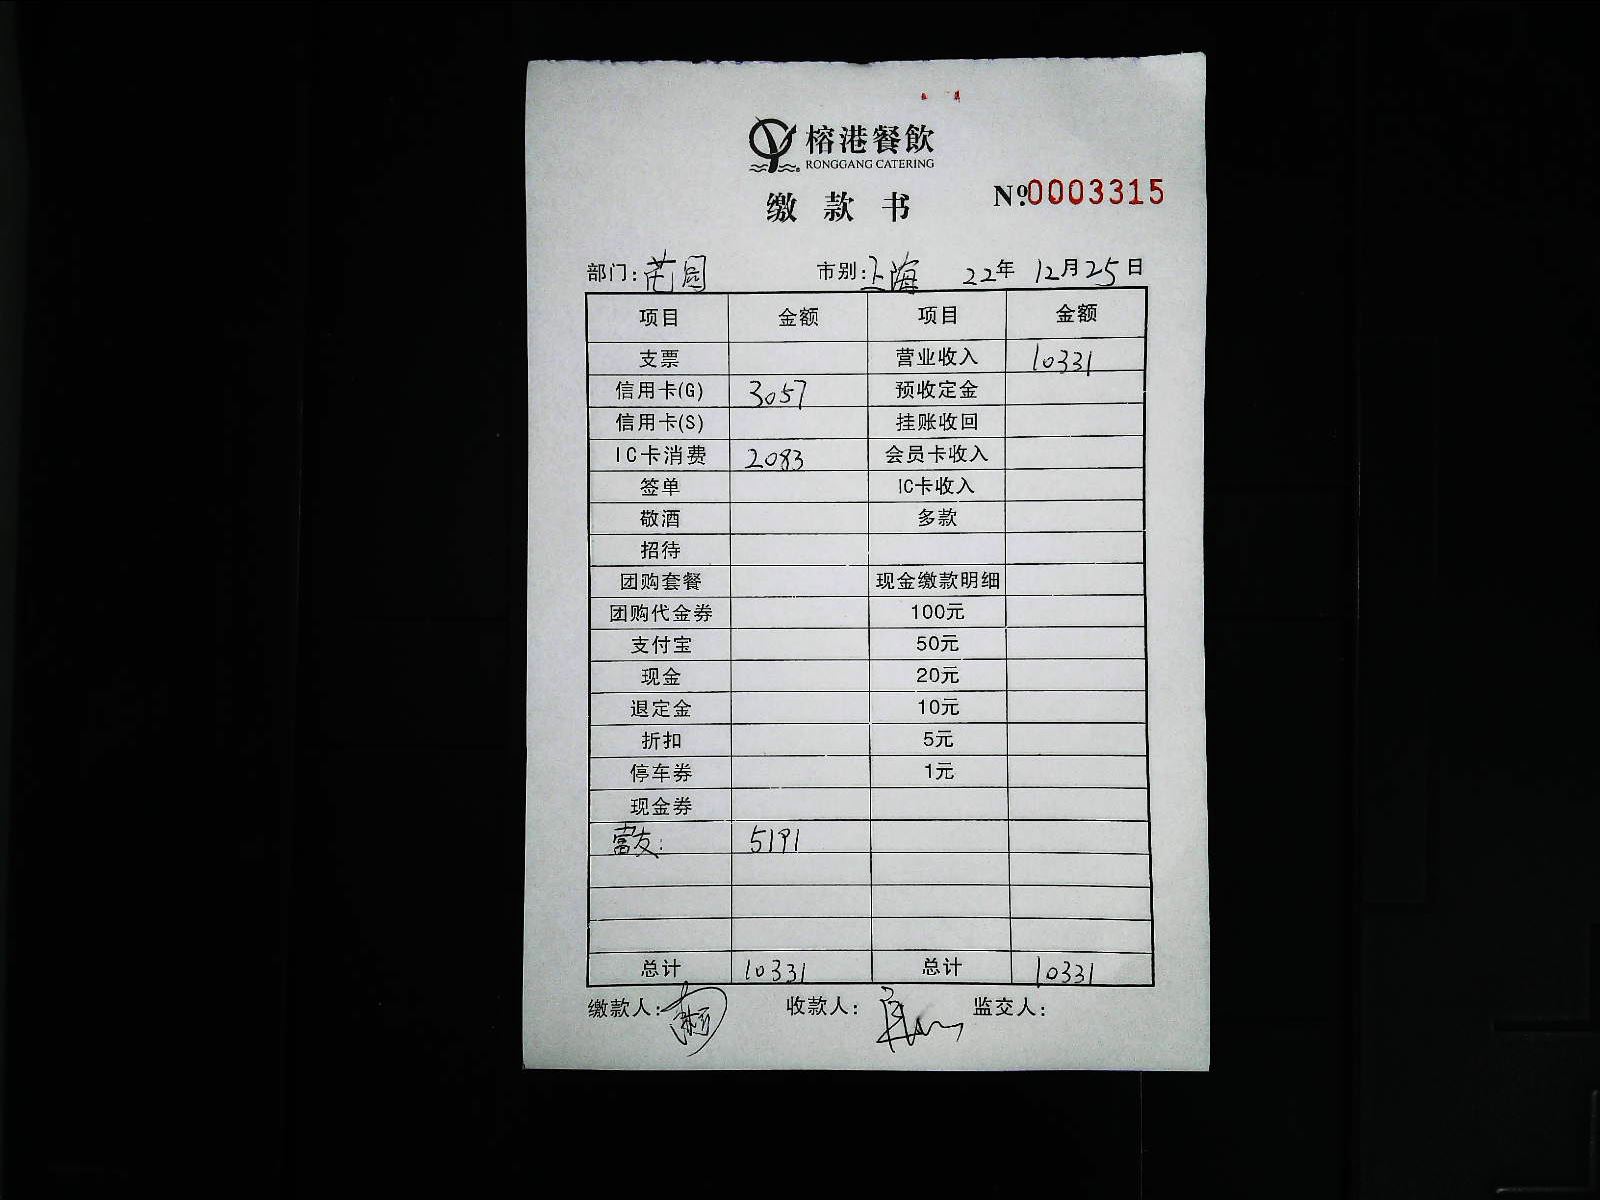 榕港餐飲
RONGGANG CATERING
缴款书
Nº:0003315
部门: 芒园 市别: 上海 22年 12月25日
项目 金额 项目 金额
支票 营业收入 10331
信用卡(G) 3057 预收定金
信用卡(S) 挂账收回
IC卡消费 2083 会员卡收入
签单 IC卡收入
敬酒 多款
招待
团购套餐 现金缴款明细
团购代金券 100元
支付宝 50元
现金 20元
退定金 10元
折扣 5元
停车券 1元
现金券
富友: 5191
总计 10331 总计 10331
缴款人: 收款人: 监交人: